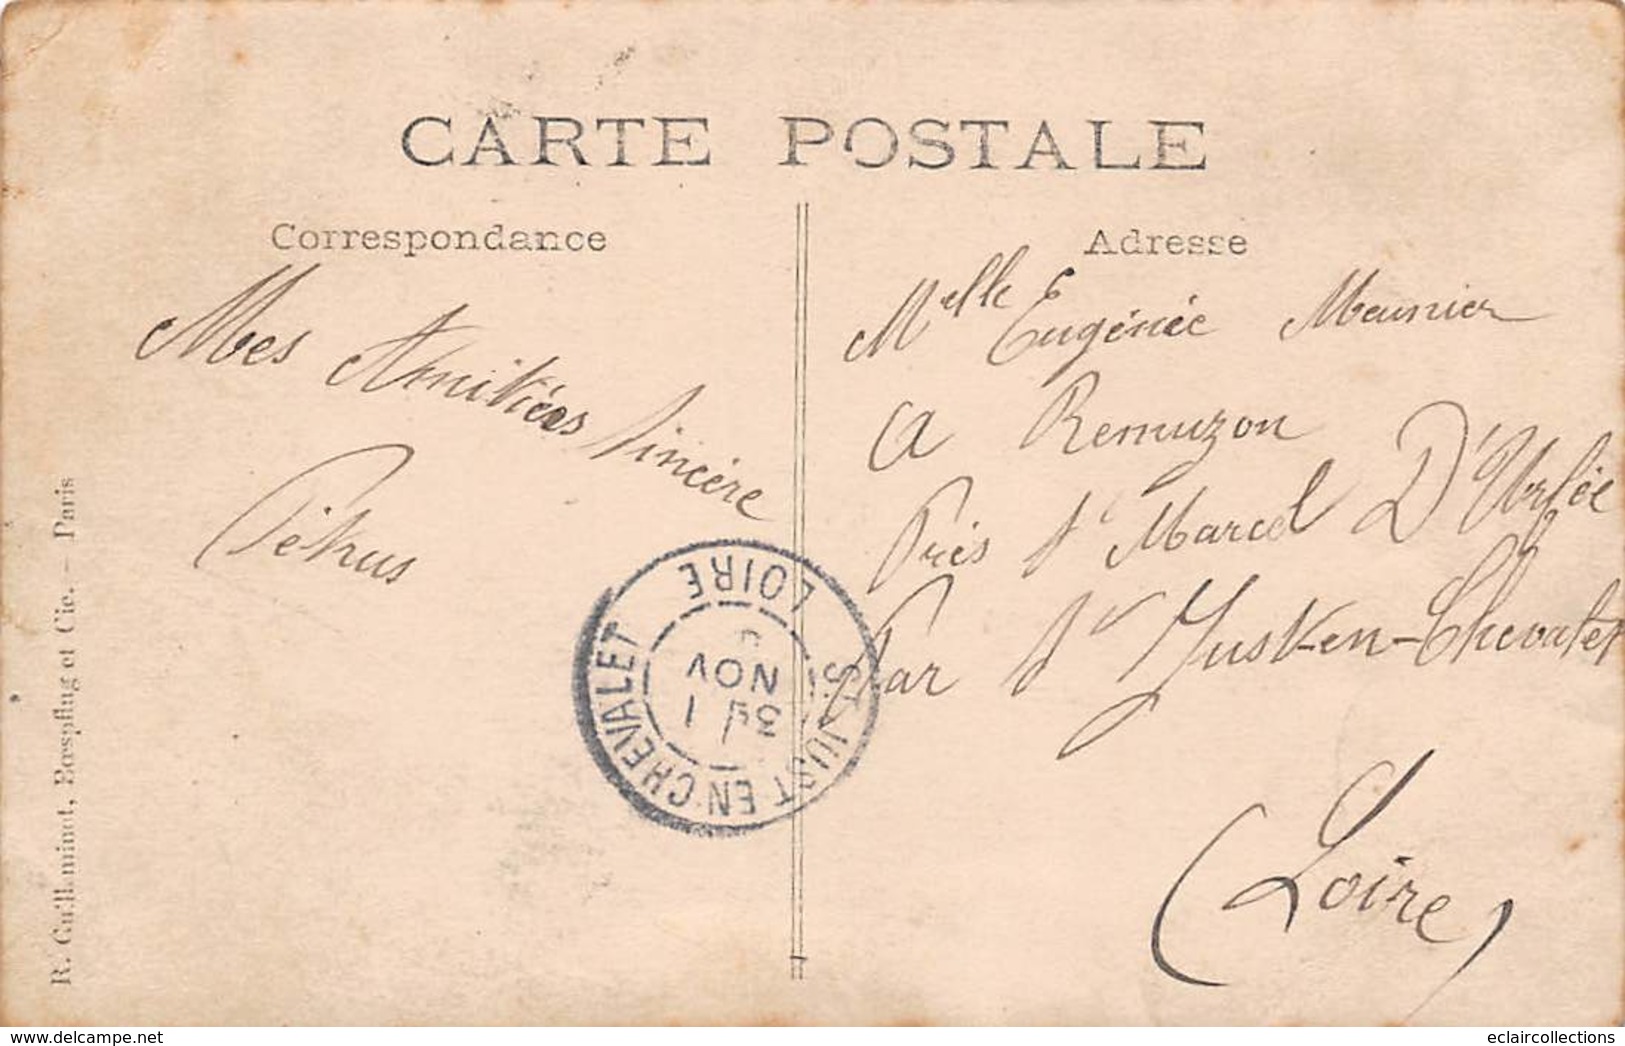 CARTE POSTALE
Correspondance
Adresse
Mes Amitiées Sincère
Melle Eugénie Meunier
a Remuzon
Près St Marcel D'Urfée
Par St Just-en-Chevalet
(Loire)
ST JUST EN CHEVALET
LOIRE
NOV
R. Guilleminot, Bœspflug et Cie. — Paris
eclaircollections